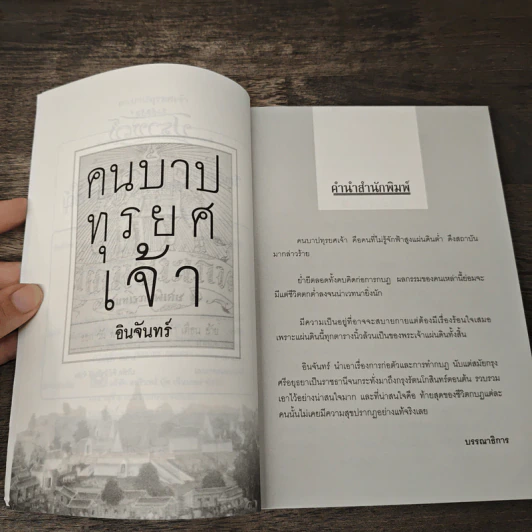 คนบาป
ทุรยศ
เจ้า
อินจันทร์
คำนำสำนักพิมพ์
คนบาปทุรยศเจ้า คือคนที่ไม่รู้จักฟ้าสูงแผ่นดินต่ำ ดึงสถาบัน
มากล่าวร้าย
ย่ำยีตลอดทั้งคบคิดก่อการกบฏ ผลกรรมของคนเหล่านี้ย่อมจะ
มีแต่ชีวิตตกต่ำลงจนน่าเวทนายิ่งนัก
มีความเป็นอยู่ที่อาจจะสบายกายแต่ต้องมีเรื่องร้อนใจเสมอ
เพราะแผ่นดินนี้ทุกตารางนิ้วล้วนเป็นของพระเจ้าแผ่นดินทั้งสิ้น
อินจันทร์ นำเอาเรื่องการก่อตัวและการทำกบฏ นับแต่สมัยกรุง
ศรีอยุธยาเป็นราชธานีจนกระทั่งมาถึงกรุงรัตนโกสินทร์ตอนต้น รวบรวม
เอาไว้อย่างน่าสนใจมาก และที่น่าสนใจคือ ท้ายสุดของชีวิตกบฏแต่ละ
คนนั้นไม่เคยมีความสุขปรากฏอย่างแท้จริงเลย
บรรณาธิการ